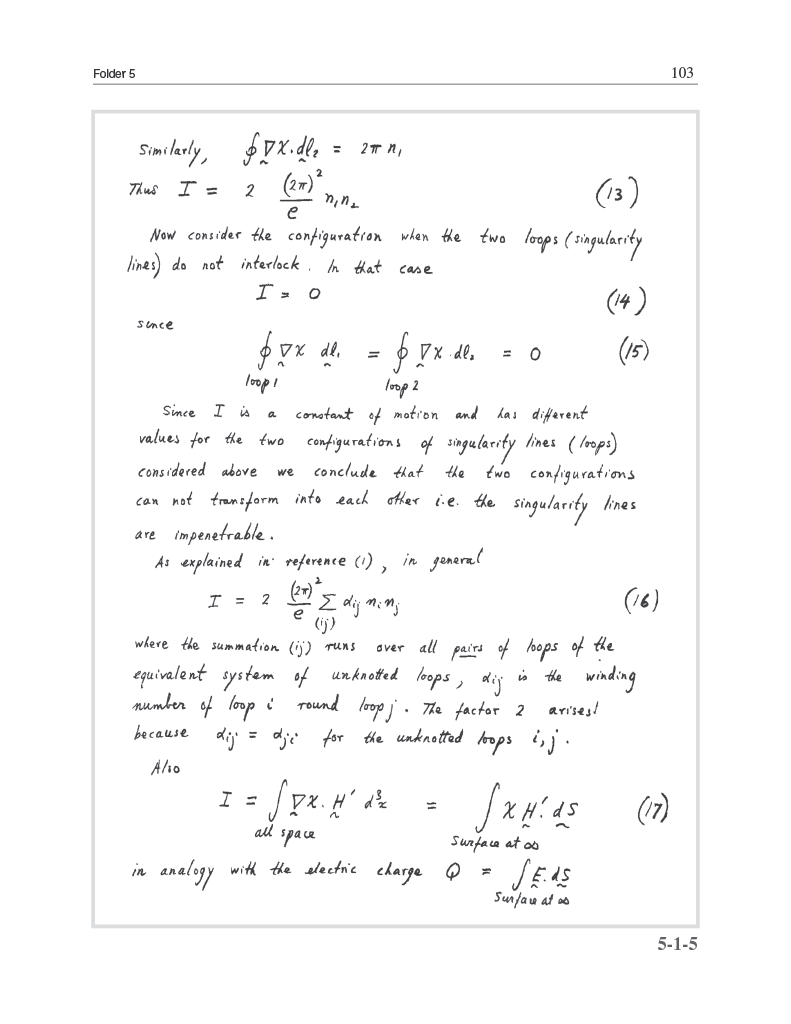 Folder 5 103
Similarly, ∮ ∇χ.dl₂ = 2π n₁
Thus I = 2 (2π)²/e n₁n₂ (13)
Now consider the configuration when the two loops (singularity
lines) do not interlock. In that case
I = 0 (14)
since
∮ ∇χ dl₁ = ∮ ∇χ.dl₂ = 0 (15)
loop 1 loop 2
Since I is a constant of motion and has different
values for the two configurations of singularity lines (loops)
considered above we conclude that the two configurations
can not transform into each other i.e. the singularity lines
are impenetrable.
As explained in reference (1), in general
I = 2 (2π)²/e Σ αij ni nj (16)
(ij)
where the summation (ij) runs over all pairs of loops of the
equivalent system of unknotted loops, αij is the winding
number of loop i round loop j. The factor 2 arises
because αij = αji for the unknotted loops i, j.
Also
I = ∫ ∇χ. H′ d³x = ∫ χ H′. dS (17)
all space Surface at ∞
in analogy with the electric charge Q = ∫ E. dS
Surface at ∞
5-1-5